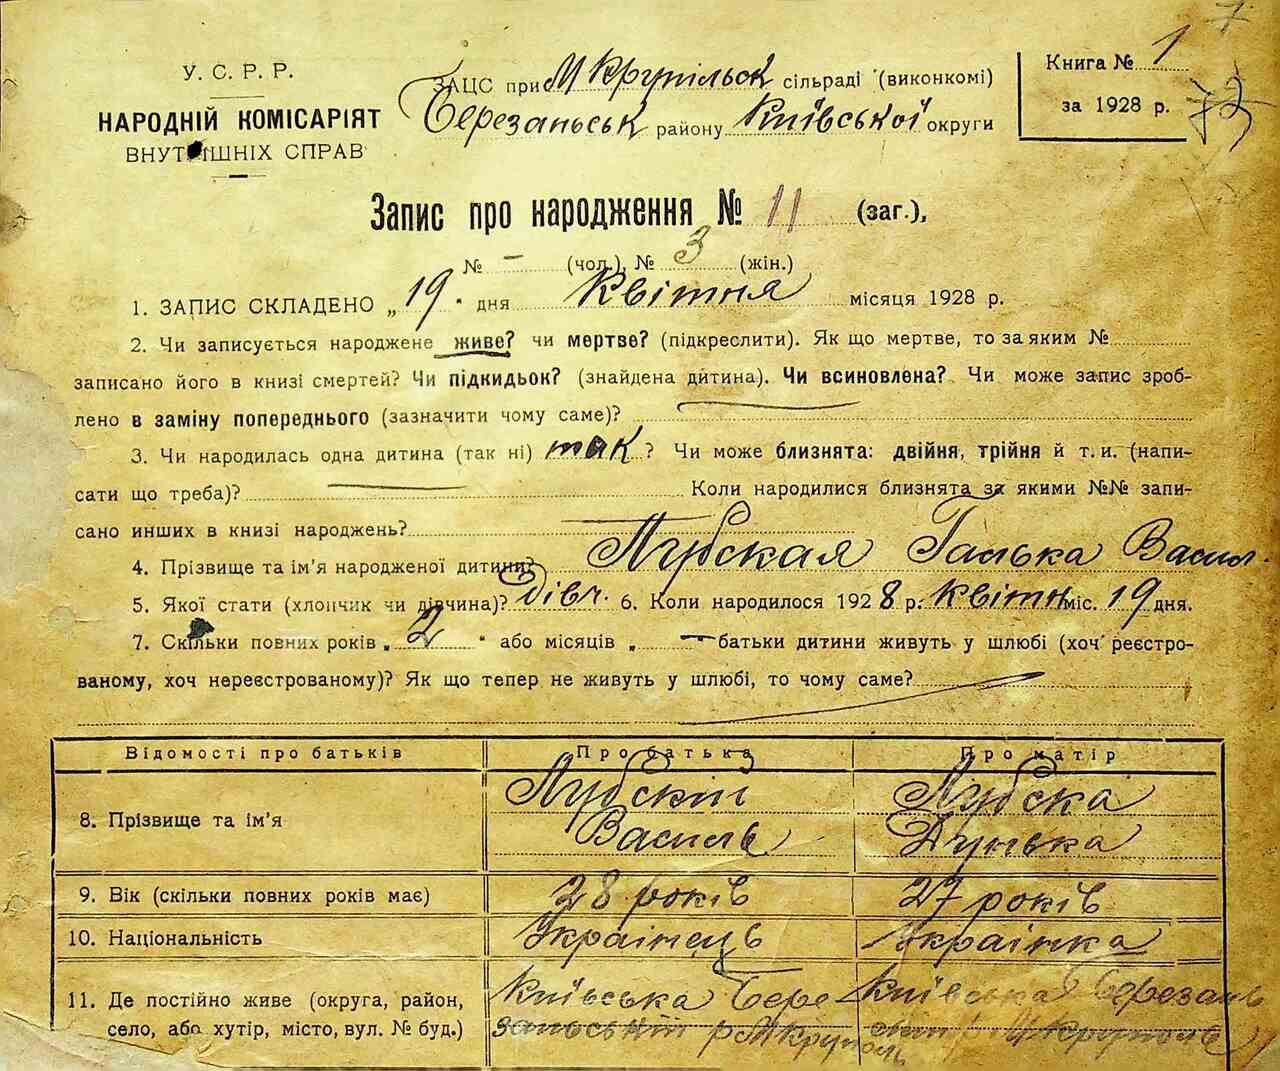 7
У. С. Р. Р.
НАРОДНІЙ КОМІСАРІЯТ
ВНУТРІШНІХ СПРАВ
ЗАЦС при М Крупільськ сільраді (виконкомі)
Березаньськ району Київської округи
Книга № 1
за 1928 р.
72
Запис про народження № 11 (заг.),
№ – (чол.), № 3 (жін.)
1. ЗАПИС СКЛАДЕНО „ 19 " дня Квітня місяця 1928 р.
2. Чи записується народжене живе? чи мертве? (підкреслити). Як що мертве, то за яким №
записано його в книзі смертей? Чи підкидьок? (знайдена дитина). Чи всиновлена? Чи може запис зроб-
лено в заміну попереднього (зазначити чому саме)?
3. Чи народилась одна дитина (так ні) так ? Чи може близнята: двійня, трійня й т. и. (напи-
сати що треба)? Коли народилися близнята за якими №№ запи-
сано инших в книзі народжень?
4. Прізвище та ім'я народженої дитини? Лубская Галька Васил.
5. Якої стати (хлопчик чи дівчина)? дівч. 6. Коли народилося 1928 р. квітн міс. 19 дня.
7. Скільки повних років „ 2 " або місяців „ – батьки дитини живуть у шлюбі (хоч реєстро-
ваному, хоч нереєстрованому)? Як що тепер не живуть у шлюбі, то чому саме?
Відомості про батьків Про батька Про матір
8. Прізвище та ім'я Лубскій Василь Лубска Дунька
9. Вік (скільки повних років має) 28 років 27 років
10. Національність Українець Українка
11. Де постійно живе (округа, район, Київська Бере Київська Березань
село, або хутір, місто, вул. № буд.) заньській р М Круполь М Круполь